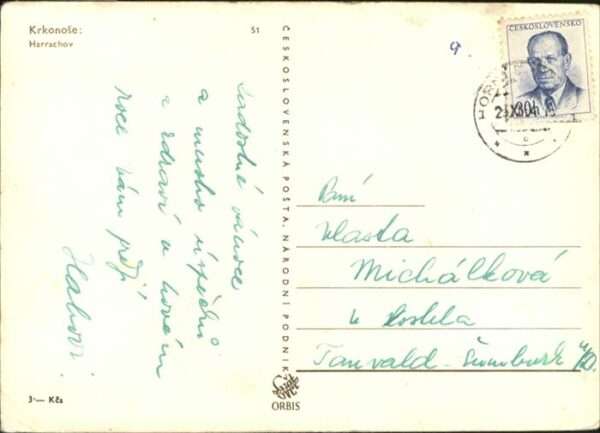 Krkonoše:
Harrachov
51
Radostné vánoce
a mnoho úspěchů
a zdraví v novém
roce Vám přejí
3·— Kčs
ČESKOSLOVENSKÁ POŠTA, NÁRODNÍ PODNIK
ORBIS
ČESKOSLOVENSKO
Paní
Vlasta
Michálková
u kostela
Tanvald - Šumburk n/D.